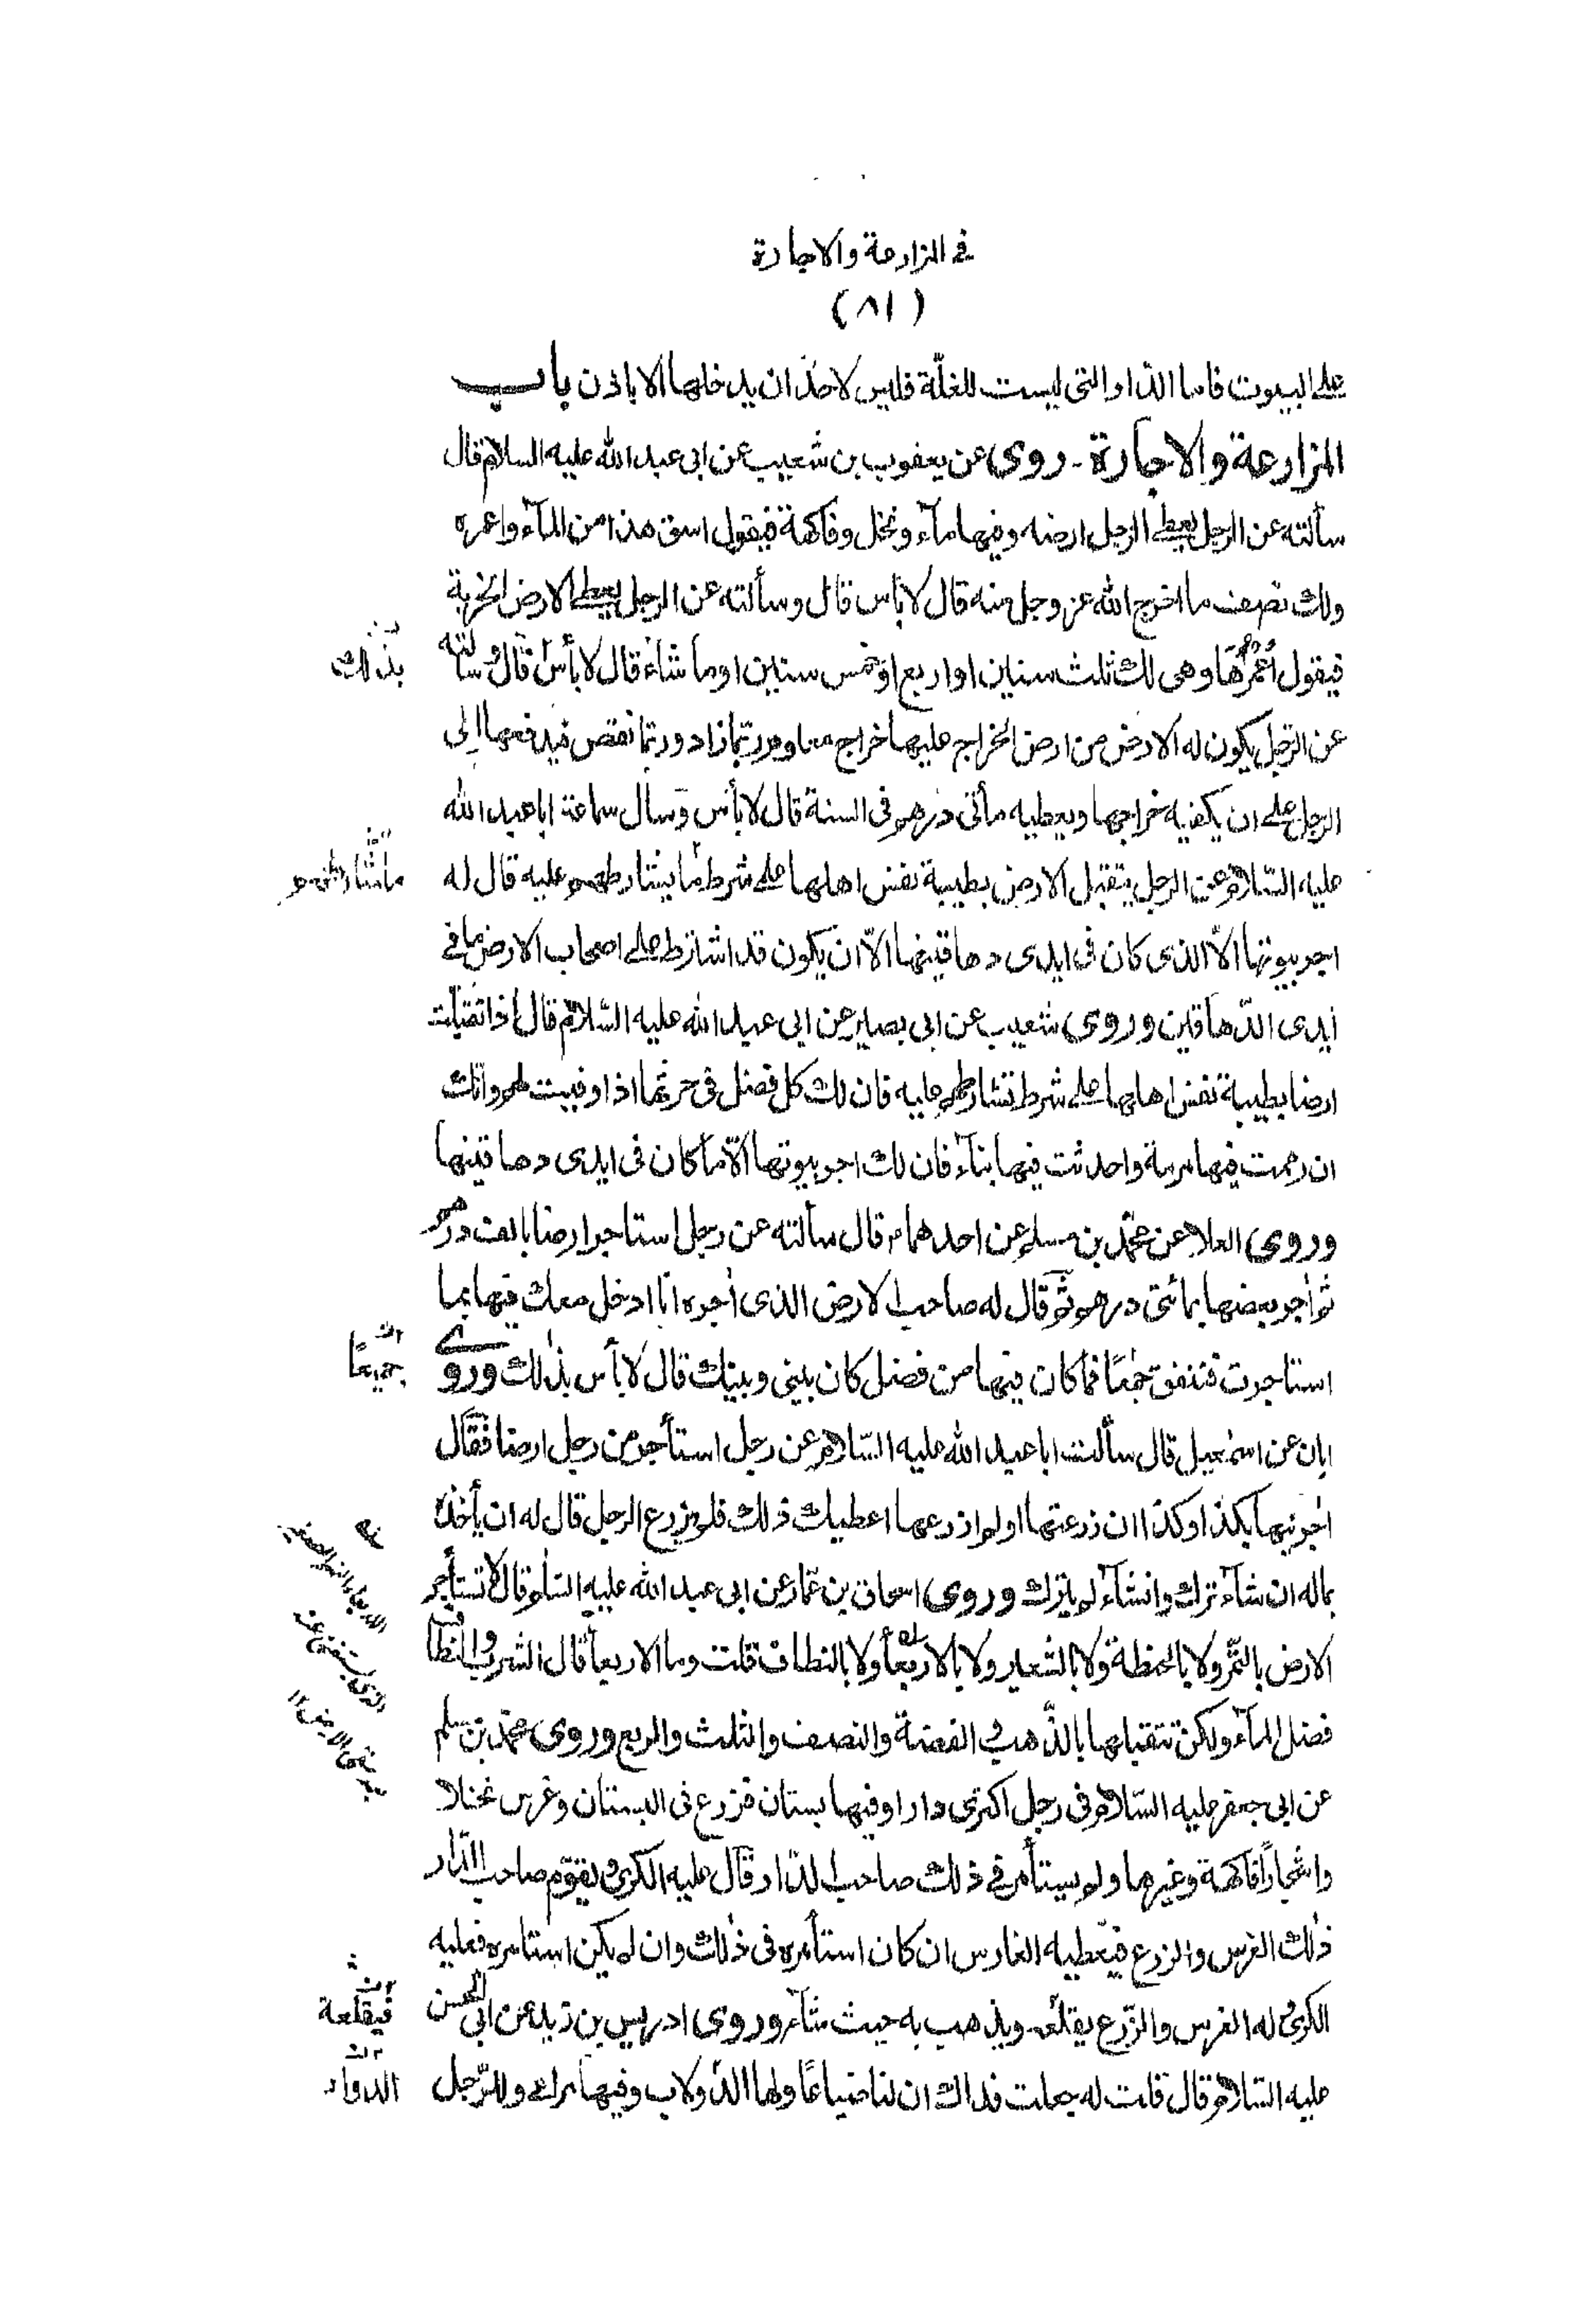 في المزارعة والاجارة
(٨١)
على البيوت فاما الدّار التى ليست للغلّة فليس لاحد ان يدخلها الا باذن باب
المزارعة والاجارة - روى عن يعقوب بن شعيب عن ابى عبد الله عليه السلام قال
سألته عن الرجل يعطى الرجل ارضه وفيها مآء ونخل وفاكهة فيقول اسق هذا من المآء واعمره
ولك نصف ما اخرج الله عز وجل منه قال لا بأس قال وسألته عن الرجل يعطى الارض الخربة
فيقول أعمرها وهى لك ثلث سنين او اربع او خمس سنين او ما شآء قال لا بأس قال وسالته
بذلك
عن الرّجل يكون له الارض من ارض الخراج عليها خراج معلوم ربّما زاد وربّما نقص فيدفعها الى
الرجل على ان يكفيه خراجها ويعطيه مأتى درهم فى السنة قال لا بأس وسال سماعة ابا عبد الله
عليه السّلام عن الرجل يتقبل الارض بطيبة نفس اهلها على شرط ما يشارطهم عليه قال له
ما شارطهم
اجر بيوتها الّا الذى كان فى ايدى دهاقينها الّا ان يكون قد اشترط على اصحاب الارض ما في
ايدى الدّهاقين وروى شعيب عن ابى بصير عن ابى عبد الله عليه السّلام قال اذا تقبّلت
ارضا بطيبة نفس اهلها على شرط تشارطهم عليه فان لك كل فضل فى حرثها اذا وفيت لهم وانّك
ان رممت فيها مرمة واحدثت فيها بنآء فان لك اجر بيوتها الّا ما كان فى ايدى دهاقينها
وروى العلا عن محمّد بن مسلم عن احدهما م قال سألته عن رجل استاجر ارضا بالف درهم
ثم آجر بعضها بمائتى درهم ثم قال له صاحب الارض الذى آجره انا ادخل معك فيها بما
استاجرت فننفق جمعًا فما كان فيها من فضل كان بينى وبينك قال لا بأس بذلك وروى
جميعًا
ابان عن اسمعيل قال سألت ابا عبد الله عليه السّلام عن رجل استأجر من رجل ارضا فقال
آجرنيها بكذا وكذا ان زرعتها او لم ازرعها اعطيك ذلك فلم يزرع الرجل قال له ان يأخذه
بماله ان شآء ترك وان شآء لم يترك وروى اسحاق بن عمّار عن ابى عبد الله عليه السّلام قال لا تستأجر
الارض بالتّمر ولا بالحنطة ولا بالشّعير ولا بالاربعآ ولا بالنطاف قلت وما الاربعآ قال الشرب والنطاف
فضل المآء ولكن تتقبلها بالذّهب و الفضة والنصف والثلث والربع وروى محمّد بن مسلم
عن ابى جعفر عليه السّلام فى رجل اكترى دارا وفيها بستان فزرع فى البستان وغرس نخلا
واشجارًا فاكهة وغيرها ولم يستأمر في ذلك صاحب الدّار قال عليه الكرى و يقوّم صاحب الدّار
ذلك الغرس والزرع فيعطيه الغارس ان كان استأمره فى ذلك وان لم يكن استامره فعليه
الكرى وله الغرس والزّرع يقلعه ويذهب به حيث شآء وروى ادريس بن زيد عن ابى الحسن
فيقلعه
عليه السّلام قال قلت له جعلت فداك ان لنا ضياعًا ولها الدّولاب وفيها مراعى وللرّجل
الدواب